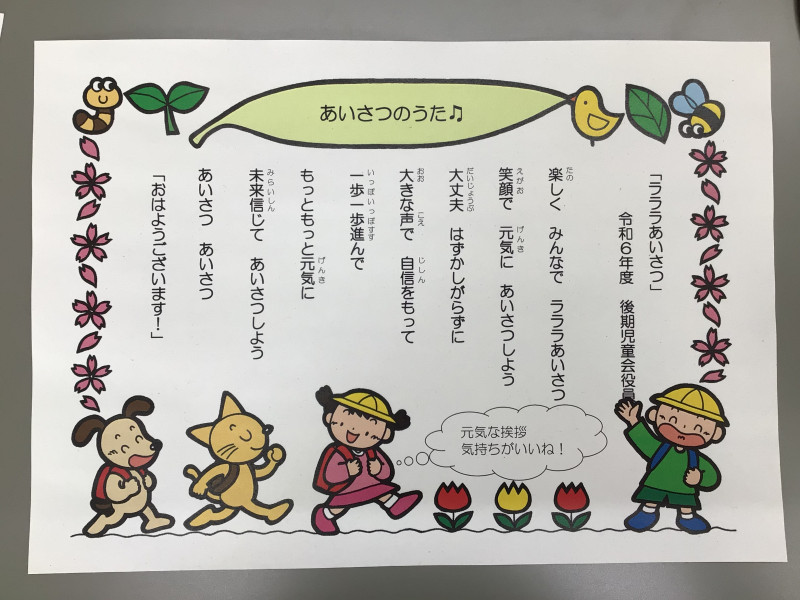 あいさつのうた♫
「ラララあいさつ」
令和６年度　後期児童会役員
楽しく　みんなで　ラララあいさつ
笑顔で　元気に　あいさつしよう
大丈夫　はずかしがらずに
大きな声で　自信をもって
一歩一歩進んで
もっともっと元気に
未来信じて　あいさつしよう
あいさつ　あいさつ
「おはようございます！」
元気な挨拶
気持ちがいいね！